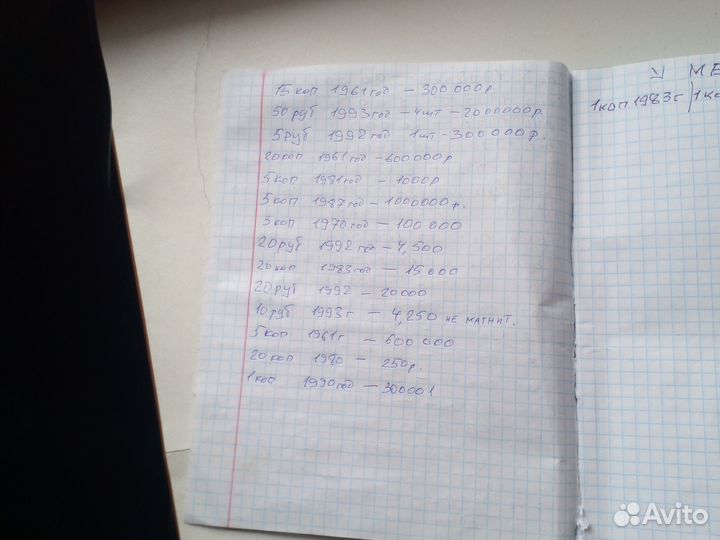 15 коп 1961 год – 300 000 р
50 руб 1993 год – 4 шт – 2000000 р.
5 руб 1992 год 1 шт – 300 000 р.
20 коп 1961 год – 600000 р
5 коп 1981 год – 1000 р
5 коп 1987 год – 1000000 р.
3 коп 1970 год – 100 000
20 руб 1992 год – 4,500
20 коп 1983 год – 15 000
20 руб 1992 – 20000
10 руб 1993 г – 4,250 не магнит.
5 коп 1961 г – 600 000
20 коп 1980 – 250 р.
1 коп 1990 год – 30000 1
У МЕ
1 коп 1983 г | 1 ко
Avito